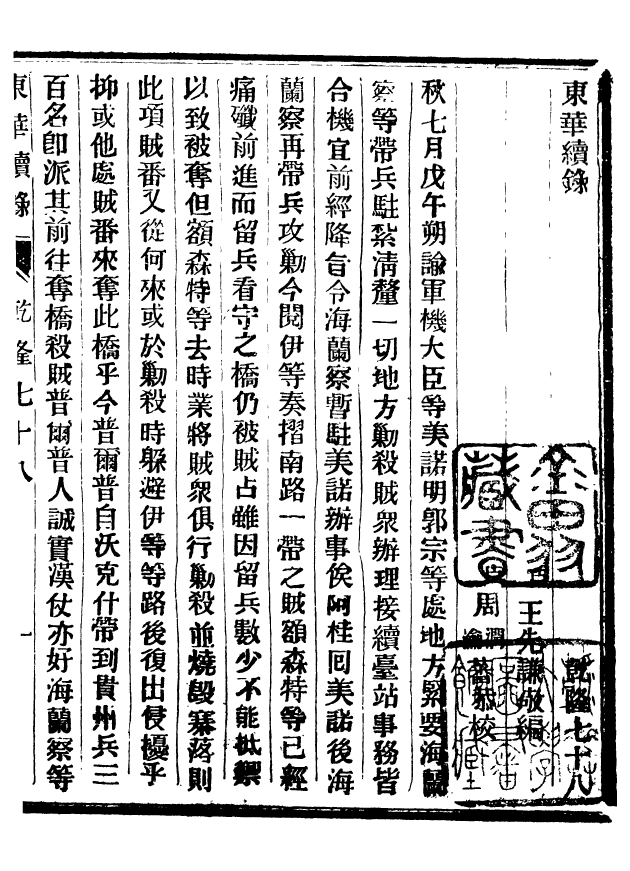 東華續錄
乾隆七十八
王先謙敬編
周潤蕃 蓺校
秋七月戊午朔諭軍機大臣等美諾明郭宗等處地方緊要海蘭
察等帶兵駐紮清釐一切地方勦殺賊衆辦理接續臺站事務皆
合機宜前經降旨令海蘭察暫駐美諾辦事俟阿桂囘美諾後海
蘭察再帶兵攻勦今閱伊等奏摺南路一帶之賊額森特等已經
痛殲前進而留兵看守之橋仍被賊占雖因留兵數少不能抵禦
以致被奪但額森特等去時業將賊衆俱行勦殺並燒毀寨落則
此項賊番又從何來或於勦殺時躲避伊等等路後復出侵擾乎
抑或他處賊番來奪此橋乎今普爾普自沃克什帶到貴州兵三
百名卽派其前往奪橋殺賊普爾普人誠實漢仗亦好海蘭察等
東華續錄 乾隆七十八 一
藏書